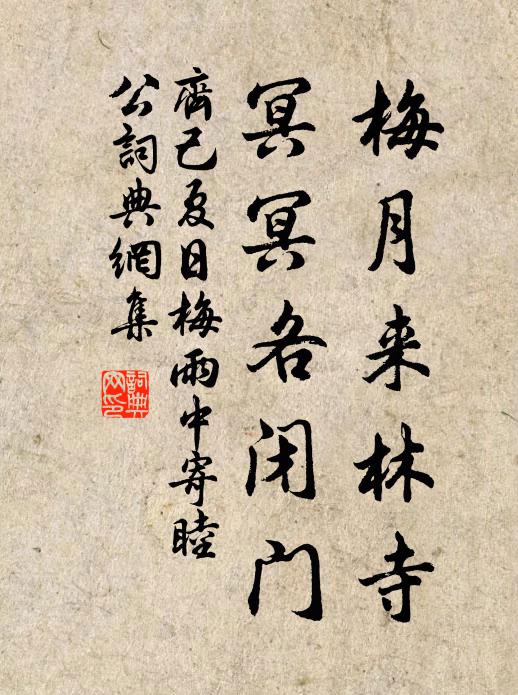 梅月来林寺
冥冥各闭門
齊己夏日梅雨中寄睦
公詞典網集
詞典
网印